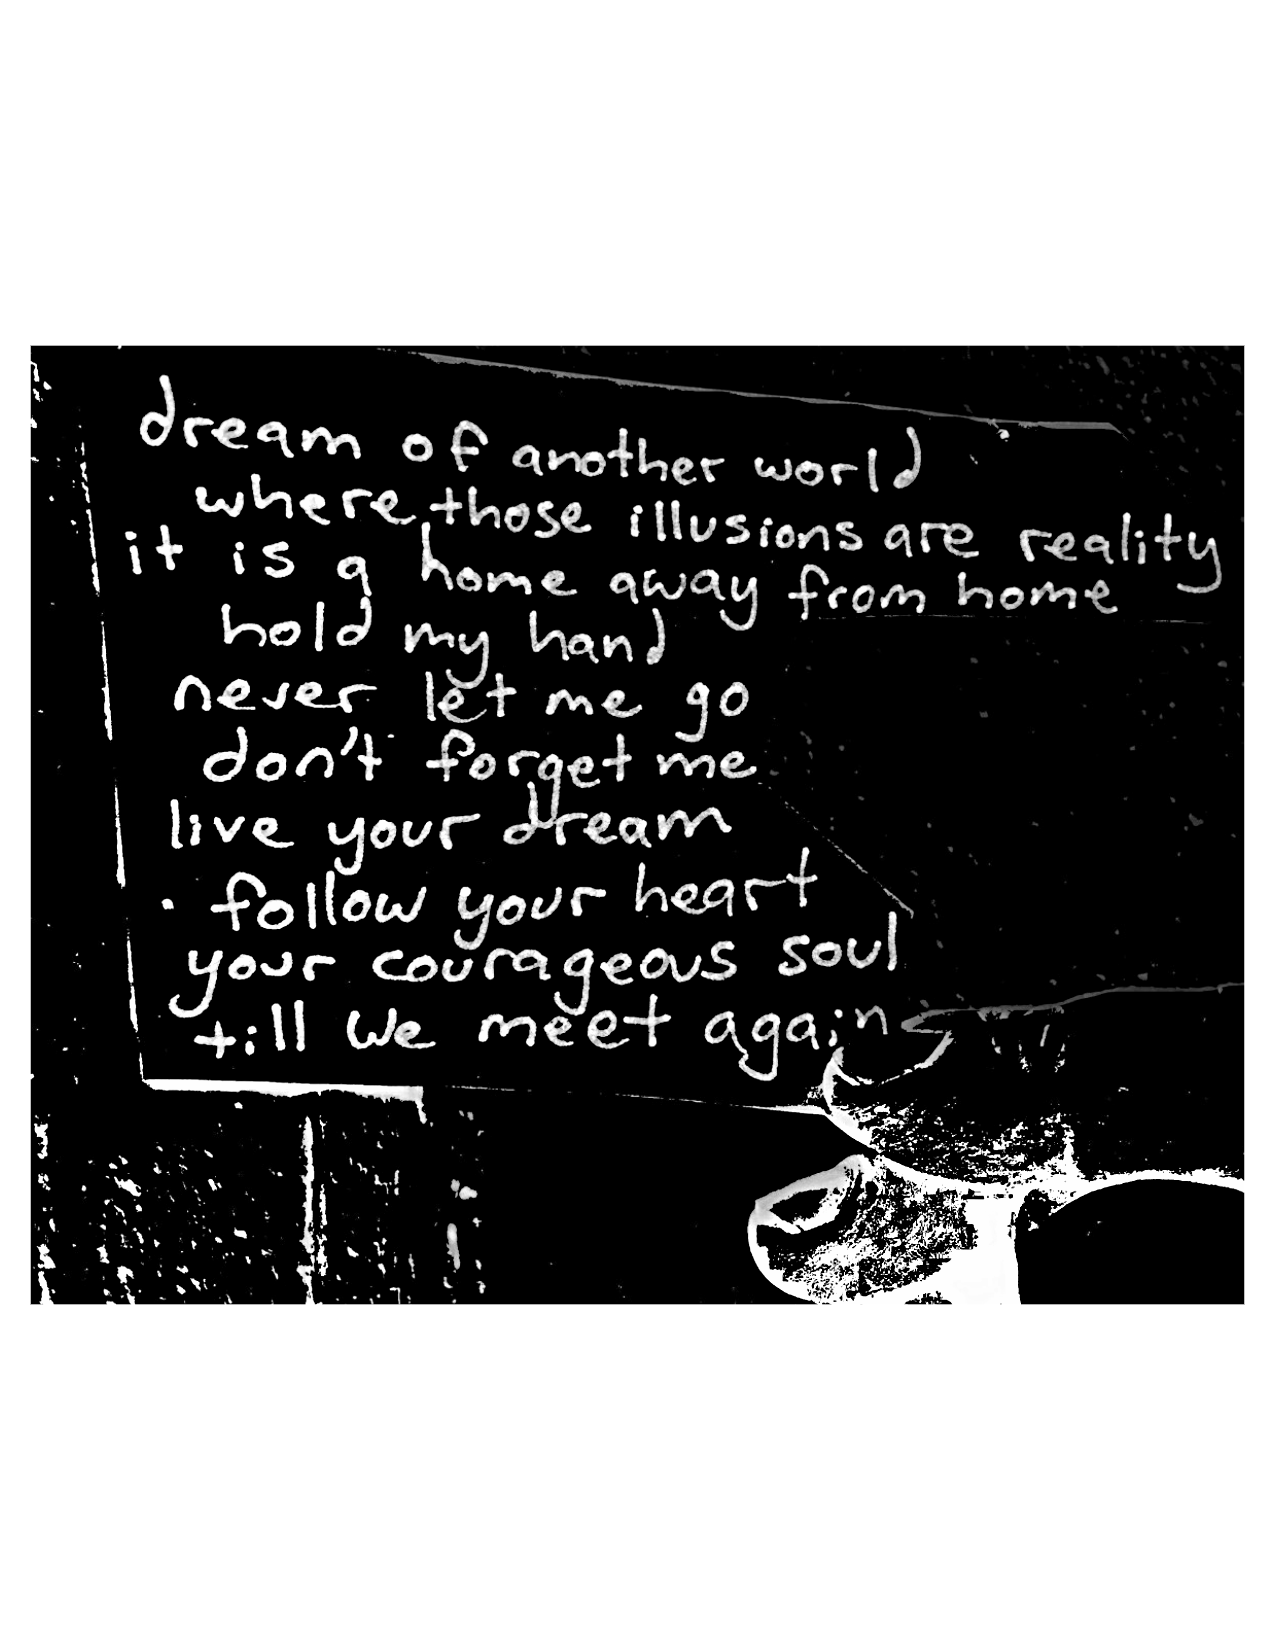 dream of another world
where those illusions are reality
it is a home away from home
hold my hand
never let me go
don't forget me
live your dream
follow your heart
your courageous soul
till we meet again